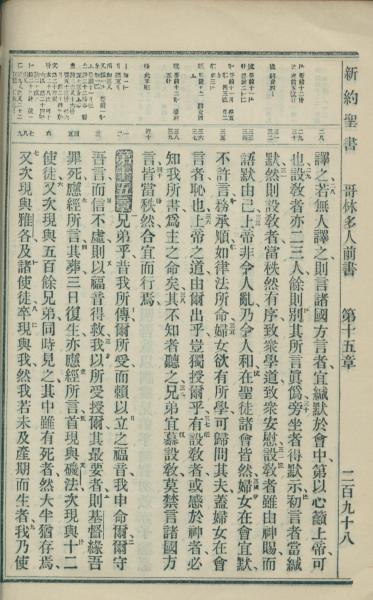 新約聖書 哥林多人前書 第十五章 二百九十八
譯之若無人譯之則言諸國方言者宜緘默於會中、第以心籲上帝可
也設敎者亦二三人餘則別其所言眞僞旁坐者得默示初言者當緘
默然則設敎者當秩然有序致衆學道致衆安慰設敎者雖由神賜而
語默由己上帝非令人亂乃令人和在聖徒諸會皆然婦女在會宜默
不許言務承順如律法所命婦女欲有所學可歸問其夫蓋婦女在會
言者恥也上帝之道由爾出乎豈獨授爾乎有設敎者或感於神者必
知我所書爲主之命矣其不知者聽之兄弟宜慕設敎莫禁言諸國方
言皆當秩然合宜而行焉
第十五章 兄弟乎昔我所傳爾所受而賴以立之福音我申命爾爾守
吾言而信不虛則以福音得救我以所受授爾其最要者則基督緣吾
罪死應經所言其葬三日復生亦應經所言首現與磯法次現與十二
使徒又次現與五百餘兄弟同時見之其中雖有死者然大半猶存焉
又次現與雅各及諸使徒卒現與我然我若未及產期而生者我乃使